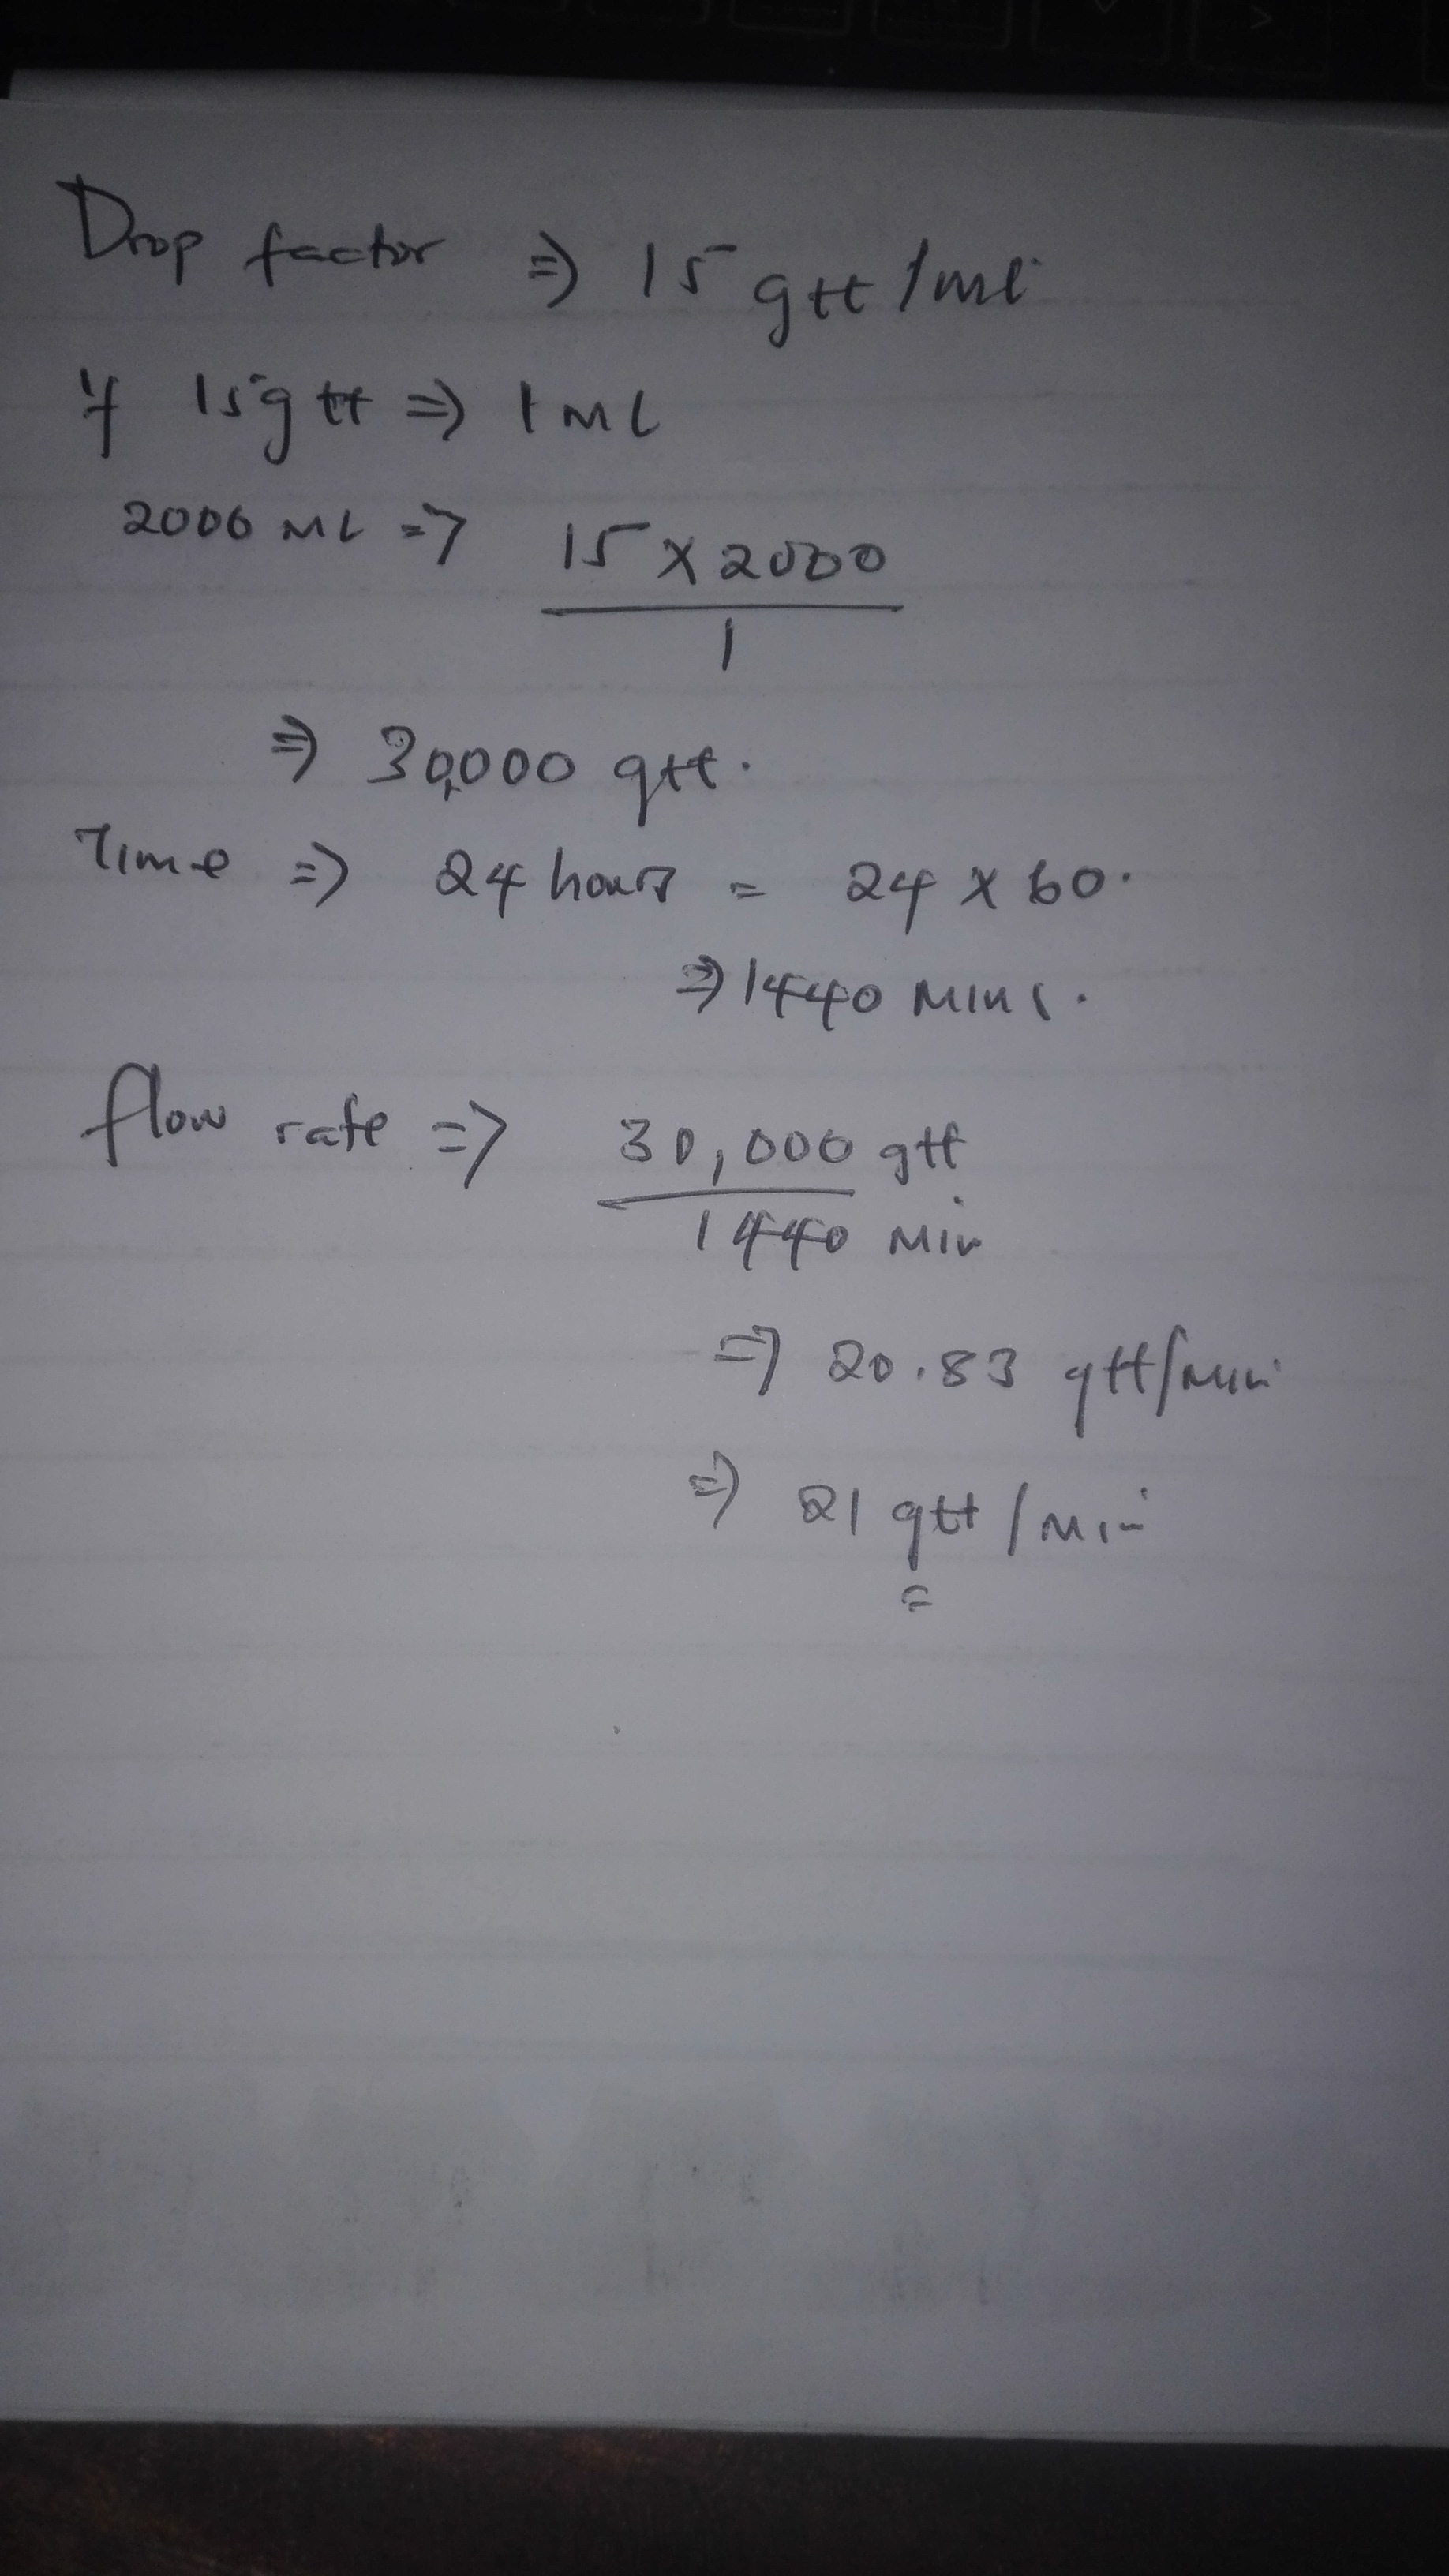 Drop factor ⇒ 15 gtt/ml
if 15gtt ⇒ 1 ML
2000 ML ⇒ 15 x 2000
1
⇒ 30,000 gtt.
Time ⇒ 24 hours = 24 x 60.
⇒ 1440 Mins.
flow rate ⇒ 30,000 gtt
1440 Min
⇒ 20.83 gtt/min
⇒ 21 gtt/Min
=